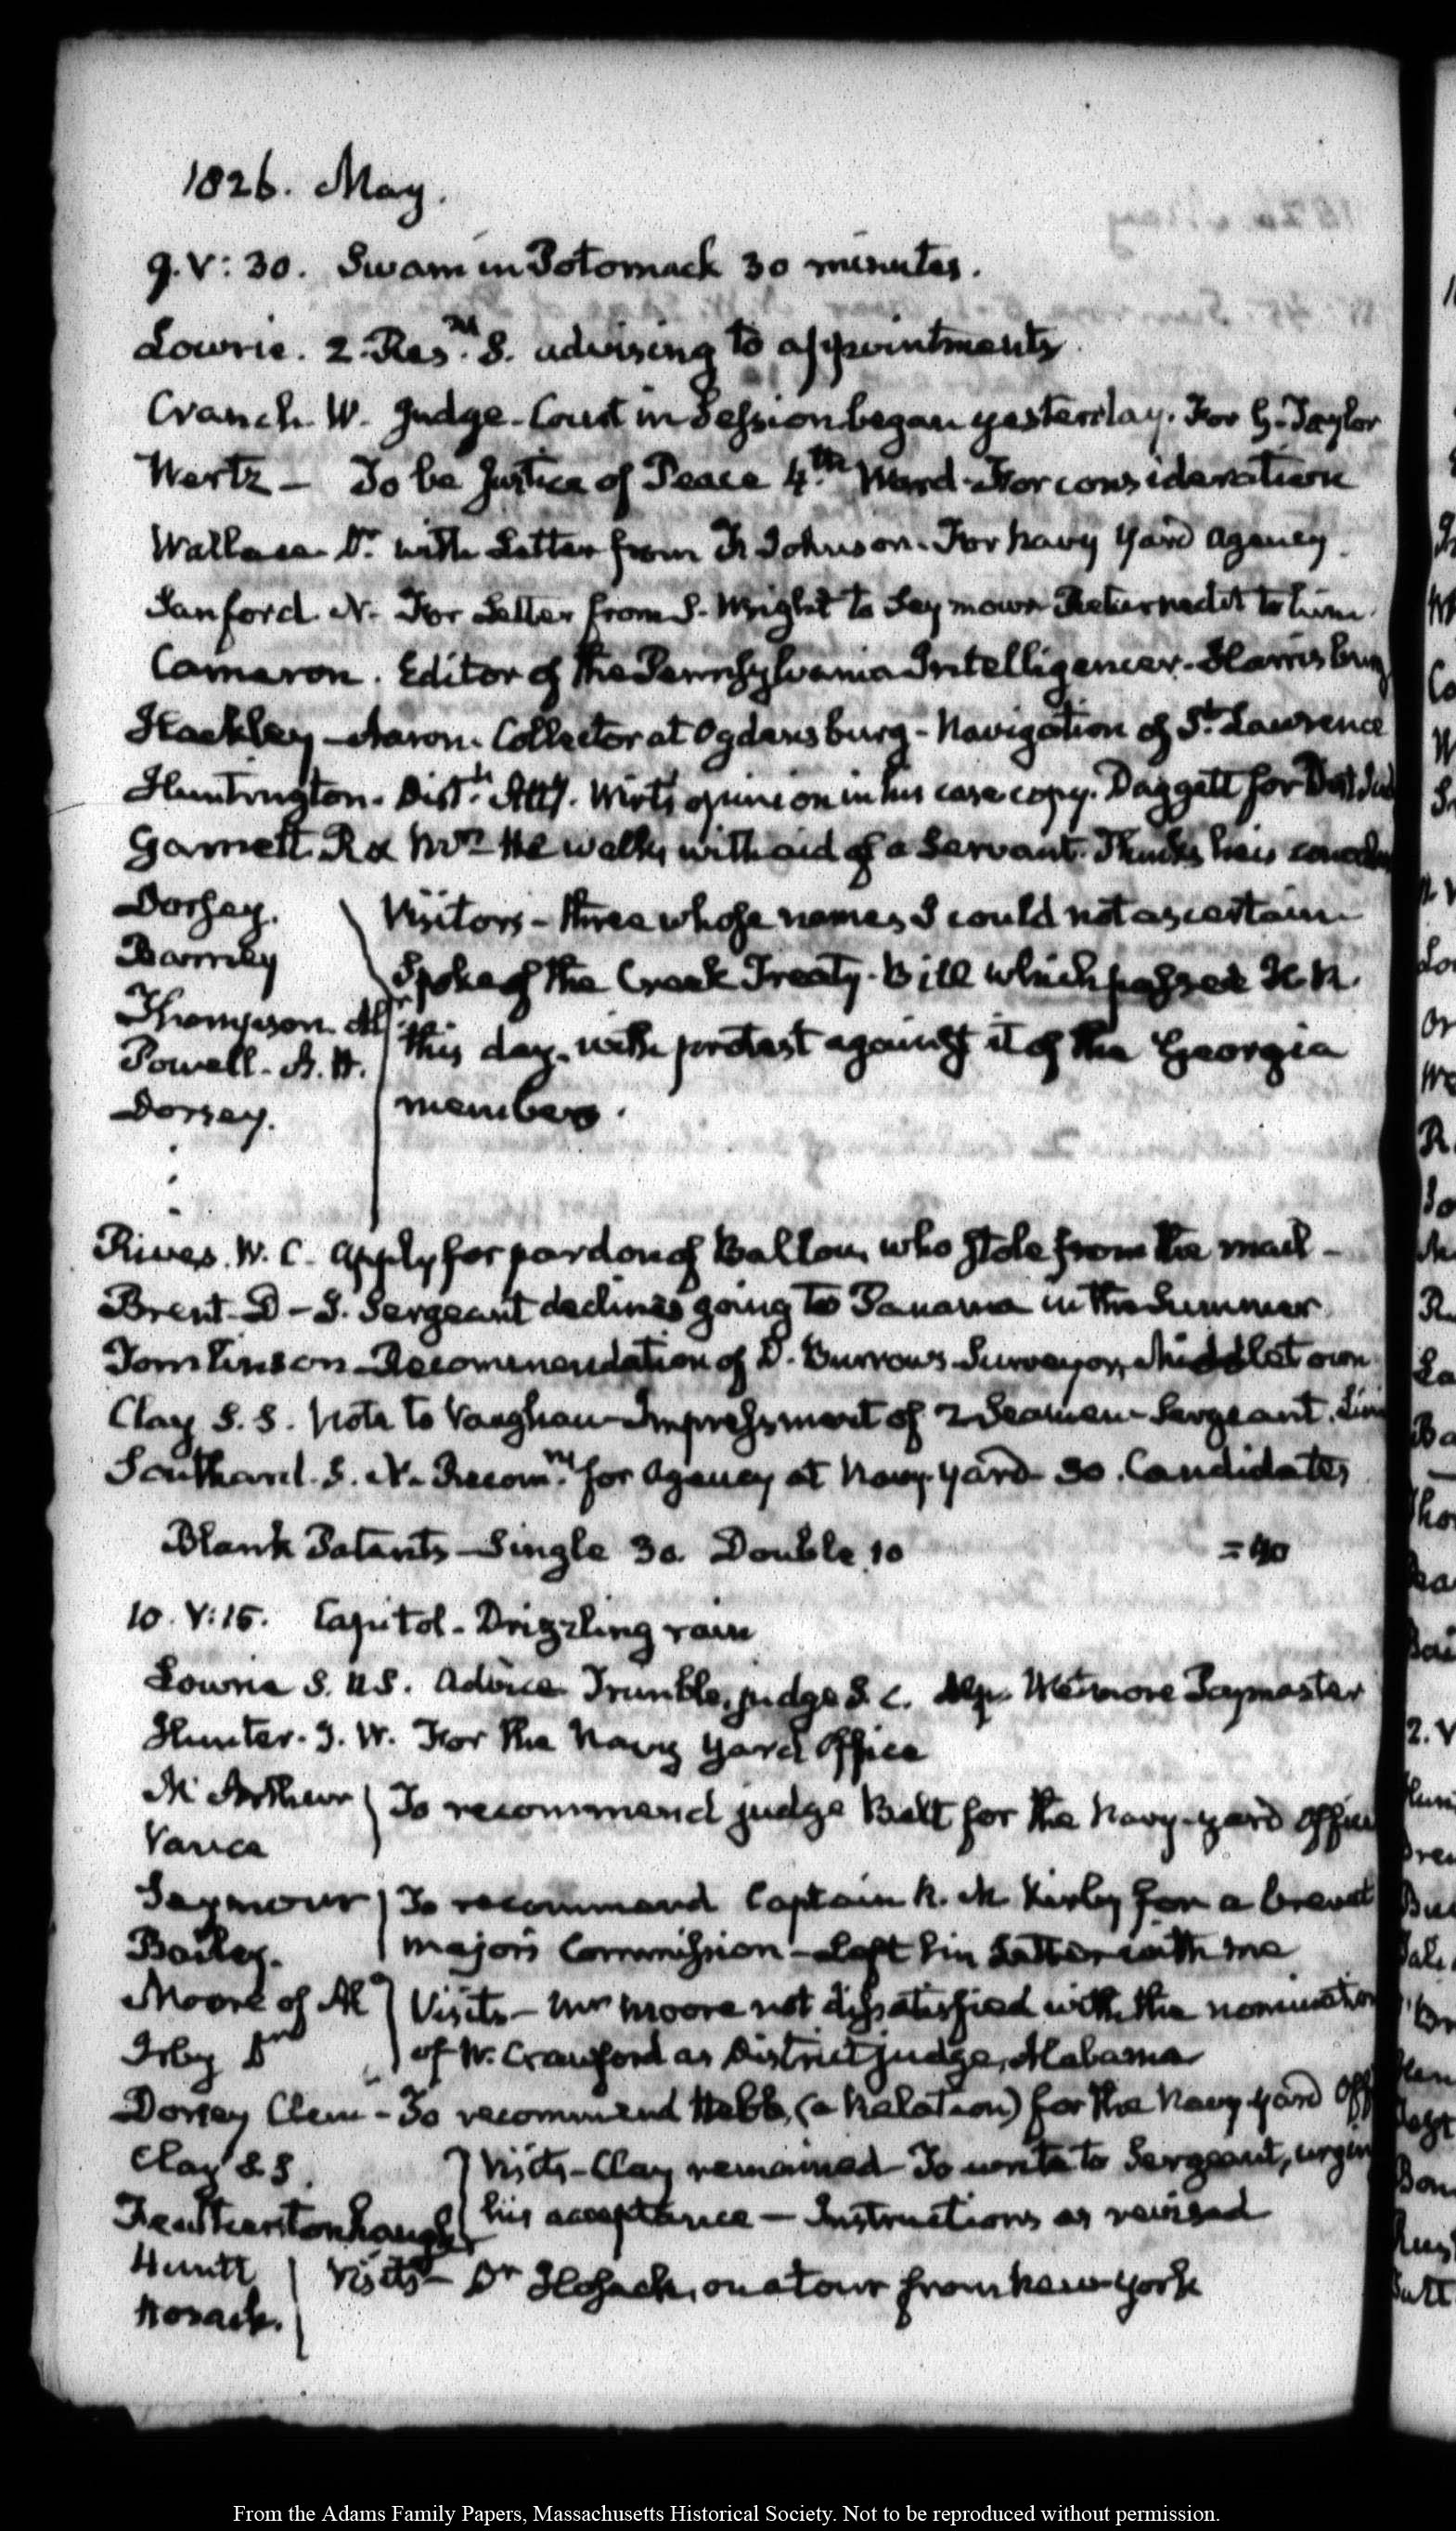 1826. May.
9. V: 30. Swam in Potomack 30 minutes.
Lowrie. 2. Resns. S. advising to appointments
Cranch W. Judge - Court in Session began yesterday. For G. Taylor
Wertz - To be Justice of Peace 4th Ward - For consideration
Wallace Dr. with Letter from F. Johnson. For Navy Yard agency.
Sanford N. For Letter from S. Wright to Seymour Returned it to him
Cameron. Editor of the Pennsylvania Intelligencer - Harrisburg
Hackley - Aaron. Collector at Ogdensburg - Navigation of St. Lawrence
Huntington. Distt. Atty. Wirt's opinion in his case copy. Daggett for Dist Jud
Garnett R & Mrs He walks with aid of a Servant. Thinks he is
Dorsey.
Barney
Thompson. Al
Powell - A. H.
Dorsey.
Visitors - three whose names I could not ascertain
Spoke of the Creek Treaty - Bill which passed H. R.
this day, with protest against it of the Georgia
members.
Rives. W. C. apply for pardon of Ballou, who stole from the mail -
Brent D - J. Sergeant declines going to Panama in the Summer
Tomlinson Recommendation of D. Burrows Surveyor, Middletown
Clay S. S. Note to Vaughan Impressment of 2 Seamen Sergeant.
Southard. S. N. Recomns. for Agency at Navy-Yard 30. Candidates
Blank Patents - Single 30. Double 10 = 40
10. V: 15. Capitol - Drizzling rain
Lowrie S. U S. Advice Trimble, judge S. C. Wetmore Paymaster
Hunter. J. W. For the Navy Yard Office
McArthur
Vance
To recommend judge Belt for the Navy-yard office
Seymour
Bailey.
To recommend Captain R. M Kirby for a brevet
majors Commission - Left his Letter with me
Moore of Ala
Irby Do
Visits - Mr Moore not dissatisfied with the nomination
of W. Crawford as District judge, Alabama
Dorsey Clem - To recommend Hebb, (a Relation) for the Navy-yard Off
Clay S S.
Featherstonhaugh
Visits - Clay remained To write to Sergeant, urging
his acceptance - Instructions as revised
Huntt
Hosack.
Visits - Dr Hosack, on a tour from New-York
From the Adams Family Papers, Massachusetts Historical Society. Not to be reproduced without permission.